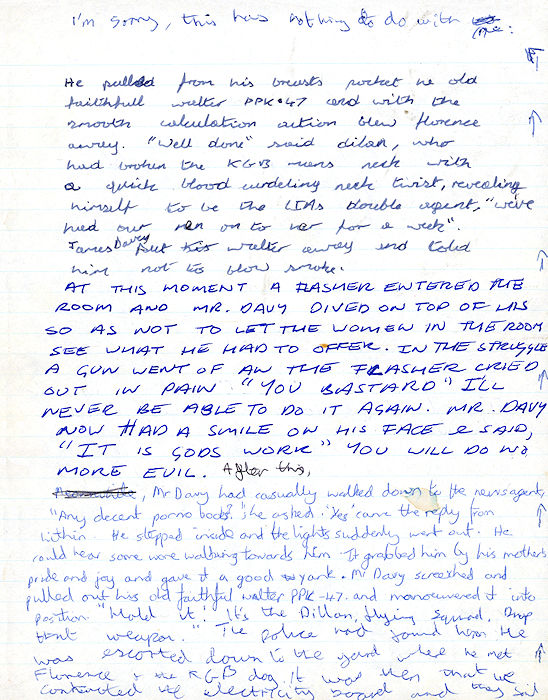 I'm sorry, this has nothing to do with me:
He pulled from his breasts pocket he old
faithfull walter PPK•47 and with the
smooth calculation action blew florence
away. "Well done" said dilan, who
had broken the KGB mens neck with
a quick blood curdeling neck twist, revealing
himself to be the CIAs double agent, "we've
had our men on to her for a week".
James Davy put his walter away and told
him not to blow smoke.
AT THIS MOMENT A FLASHER ENTERED THE
ROOM AND MR. DAVY DIVED ON TOP OF HIS
SO AS NOT TO LET THE WOMEN IN THE ROOM
SEE WHAT HE HAD TO OFFER. IN THE STRUGGLE
A GUN WENT OF AN THE FLASHER CRIED
OUT IN PAIN. "YOU BASTARD" I'LL
NEVER BE ABLE TO DO IT AGAIN. MR. DAVY
NOW HAD A SMILE ON HIS FACE & SAID,
"IT IS GODS WORK" YOU WILL DO NO
MORE EVIL. After this,
, Mr Davy had casually walked down to the newsagents
"Any decent porno books?" he asked. 'Yes' came the reply from
within. He stepped inside and the lights suddenly went out. He
could hear some walking towards him. It grabbed him by his mothers
pride and joy and gave it a good yank. Mr Davy screeched and
pulled out his old faithful walter PPK-47 and manoeuvered it into
position. "Hold it! It's the Dillan, flying squad. Drop
that weapon." The police had found him. He
was escorted down to the yard where he met
Florence & the KGB dog. It was then that we
contacted the electricity board and they